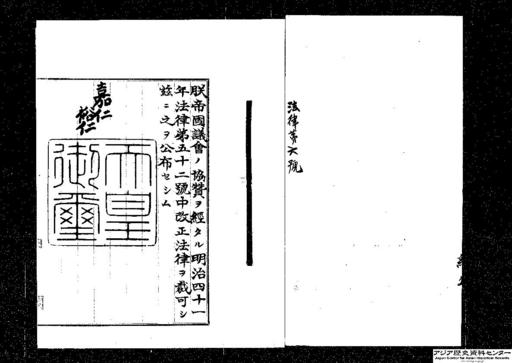 法律第六號
朕帝國議會ノ協贊ヲ經タル明治四十一
年法律第五十二號中改正法律ヲ裁可シ
玆ニ之ヲ公布セシム
嘉仁
裕仁
天皇
御璽
アジア歴史資料センター
Japan Center for Asian Historical Records